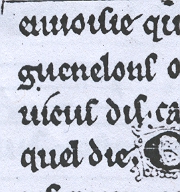 enuoisie qu
guenelons o
uieus dis. ca
quel die.